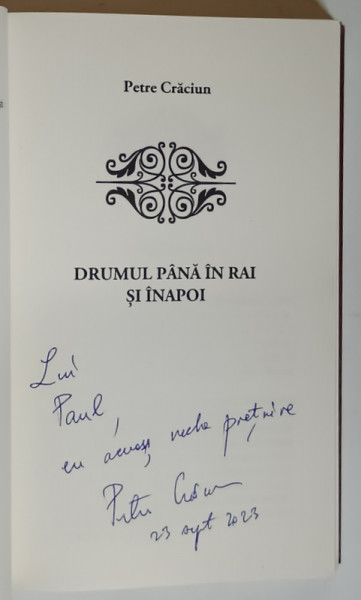 Petre Crăciun
DRUMUL PÂNĂ ÎN RAI
ȘI ÎNAPOI
Lui
Paul,
cu aceeași veche prețuire
Petre Crăciun
23 sept 2023